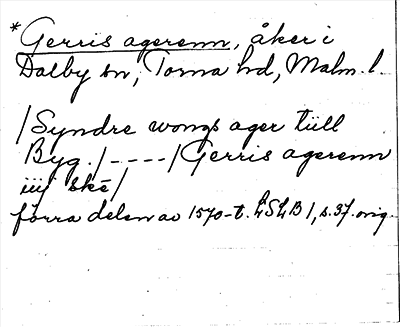 *Gerris agerenn, åker i
Dalby sn, Torna hd, Malm. l.
/Syndre wongs ager tiill
Byg./----/Gerris agerenn
iiij skē/
förra delen av 1570-t. LSLB 1, s. 37. orig.